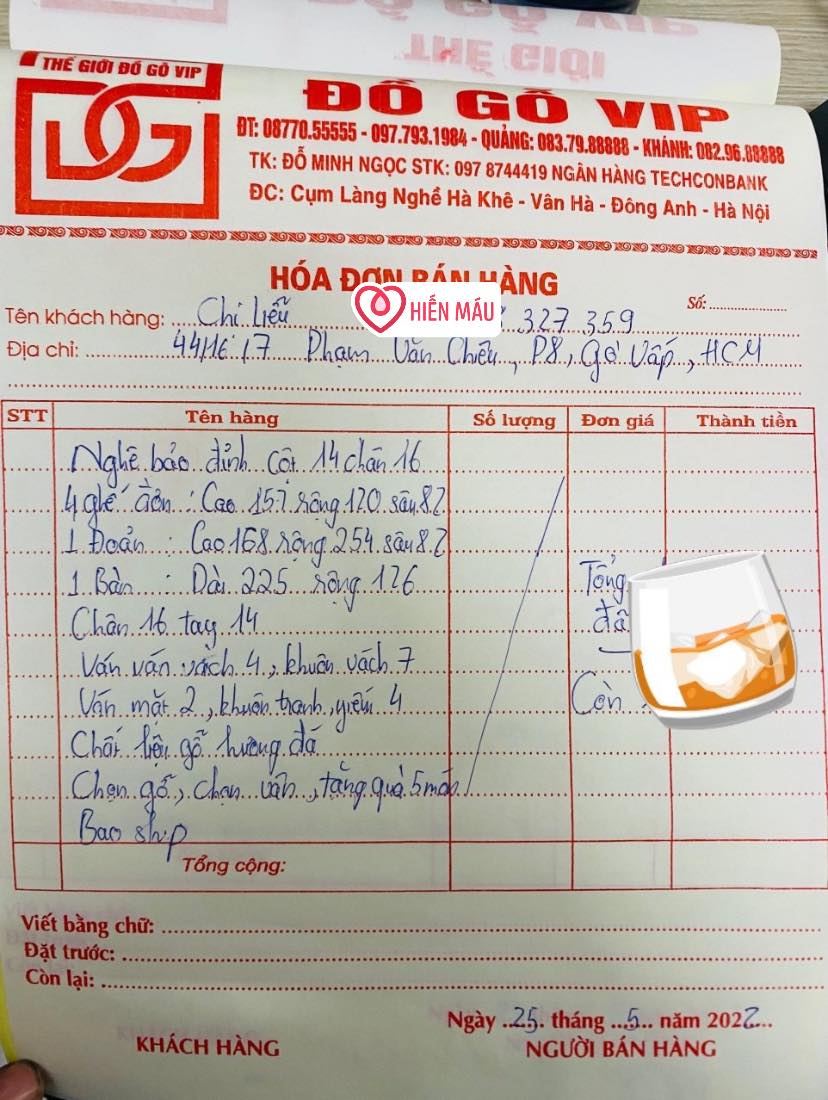 THẾ GIỚI ĐỒ GỖ VIP
ĐỒ GỖ VIP
ĐT: 08770.55555 - 097.793.1984 - QUẢNG: 083.79.88888 - KHÁNH: 082.96.88888
TK: ĐỖ MINH NGỌC STK: 097 8744419 NGÂN HÀNG TECHCONBANK
ĐC: Cụm Làng Nghề Hà Khê - Vân Hà - Đông Anh - Hà Nội
HÓA ĐƠN BÁN HÀNG
Số:
HIẾN MÁU
Tên khách hàng: Chị Liễu 327 359
Địa chỉ: 44/16/7 Phạm Văn Chiêu, P8, Gò Vấp, HCM
STT Tên hàng Số lượng Đơn giá Thành tiền
Nghê bảo đỉnh cột 14 chân 16
4 ghế đơn: Cao 157 rộng 120 sâu 82
1 Đoản: Cao 168 rộng 254 sâu 82
1 Bàn: Dài 225 rộng 126 Tổng
Chân 16 tay 14
Ván ván vách 4, khuôn vách 7
Ván mặt 2, khuôn tranh, yếm 4 Còn
Chất liệu gỗ hương đá
Chọn gỗ, chọn vân, tặng quà 5 món
Bao ship
Tổng cộng:
Viết bằng chữ:
Đặt trước:
Còn lại:
Ngày 25 tháng 5 năm 2022
KHÁCH HÀNG NGƯỜI BÁN HÀNG